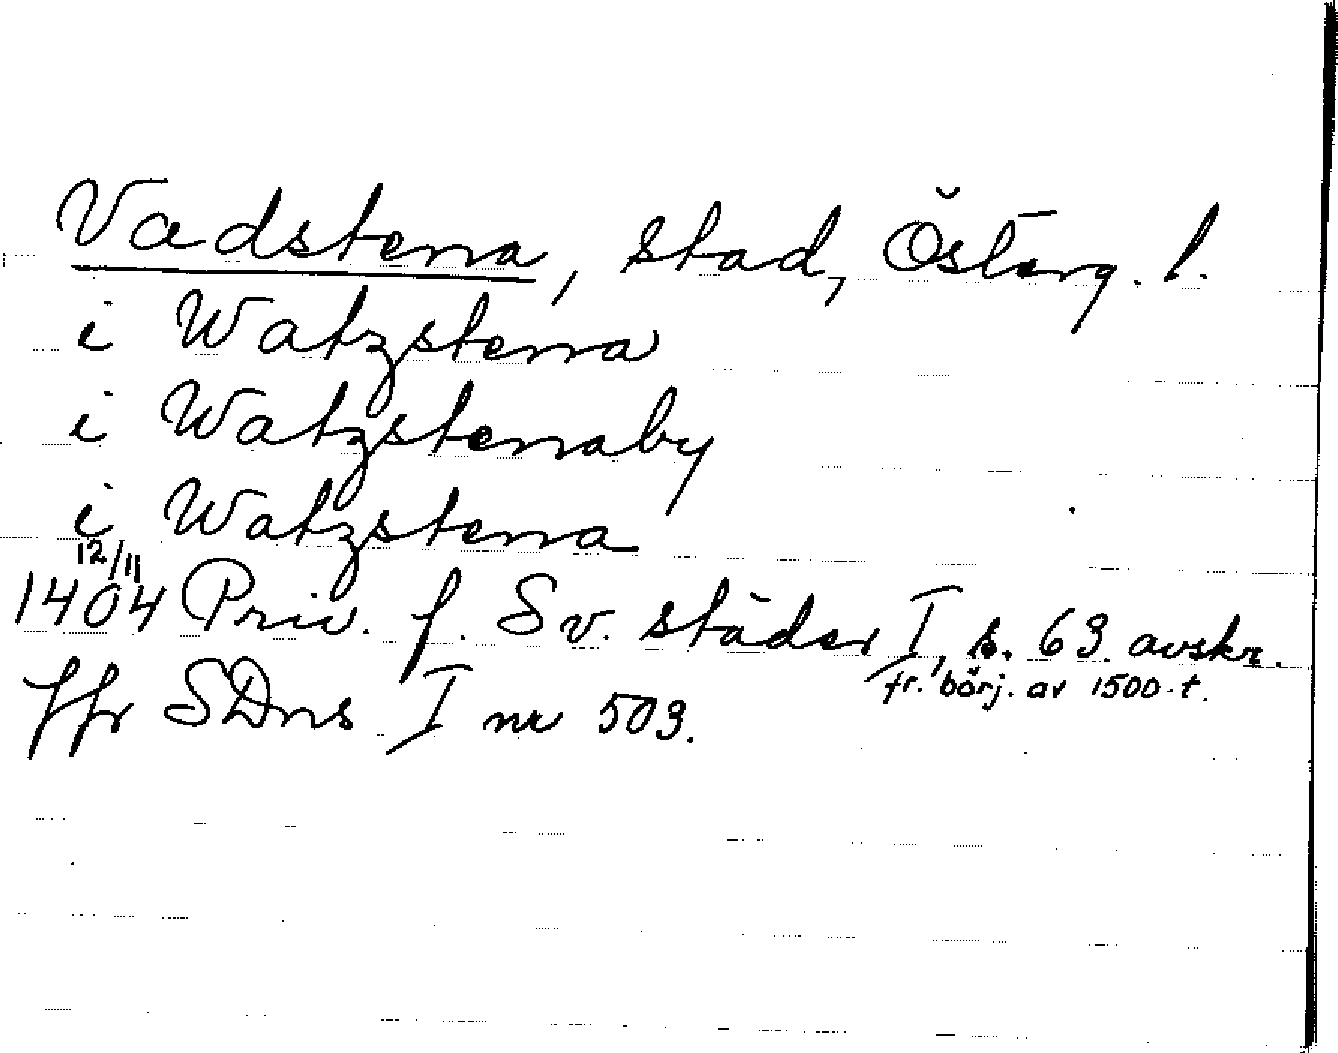 Vadstena, stad, Österg. l.
i Watzstena
i Watzstenaby
i Watzstena
12/11
1404 Priv. f. Sv. städer I, s. 63 avskr.
fr. börj. av 1500-t.
Jfr SDns I nr 503.